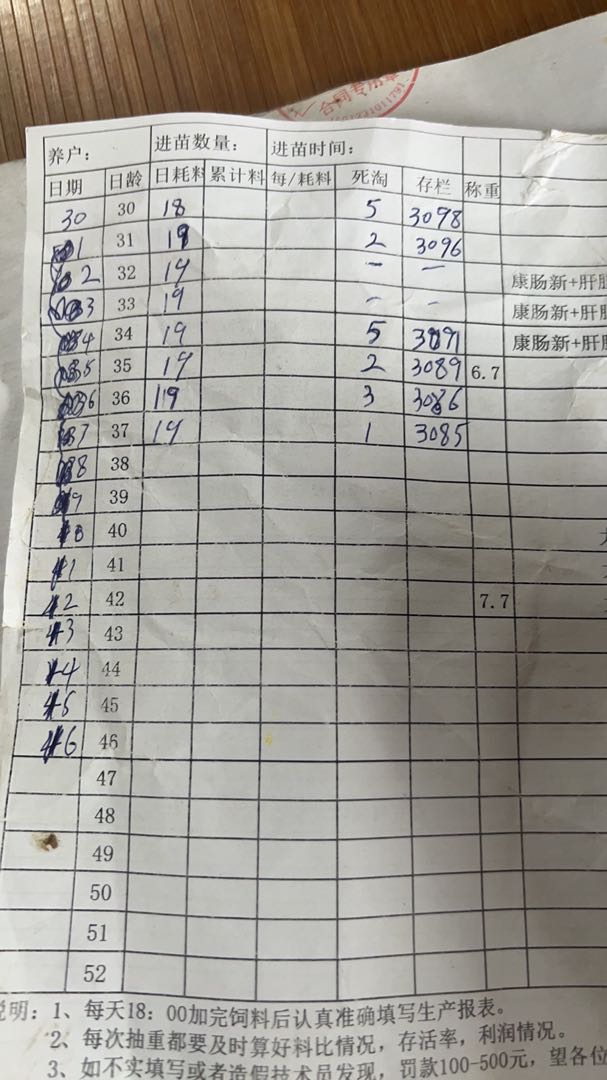 合同专用章
养户： 进苗数量： 进苗时间：
日期 日龄 日耗料 累计料 每/耗料 死淘 存栏 称重
30 30 18 5 3098
1 31 19 2 3096
2 32 19 - - 康肠新+肝
3 33 19 - - 康肠新+肝
4 34 19 5 3091 康肠新+肝
5 35 19 2 3089 6.7
6 36 19 3 3086
7 37 19 1 3085
8 38
9 39
40
41
42 7.7
43
44
45
46
47
48
49
50
51
52
说明：1、每天18：00加完饲料后认真准确填写生产报表。
2、每次抽重都要及时算好料比情况，存活率，利润情况。
3、如不实填写或者造假技术员发现，罚款100-500元，望各位